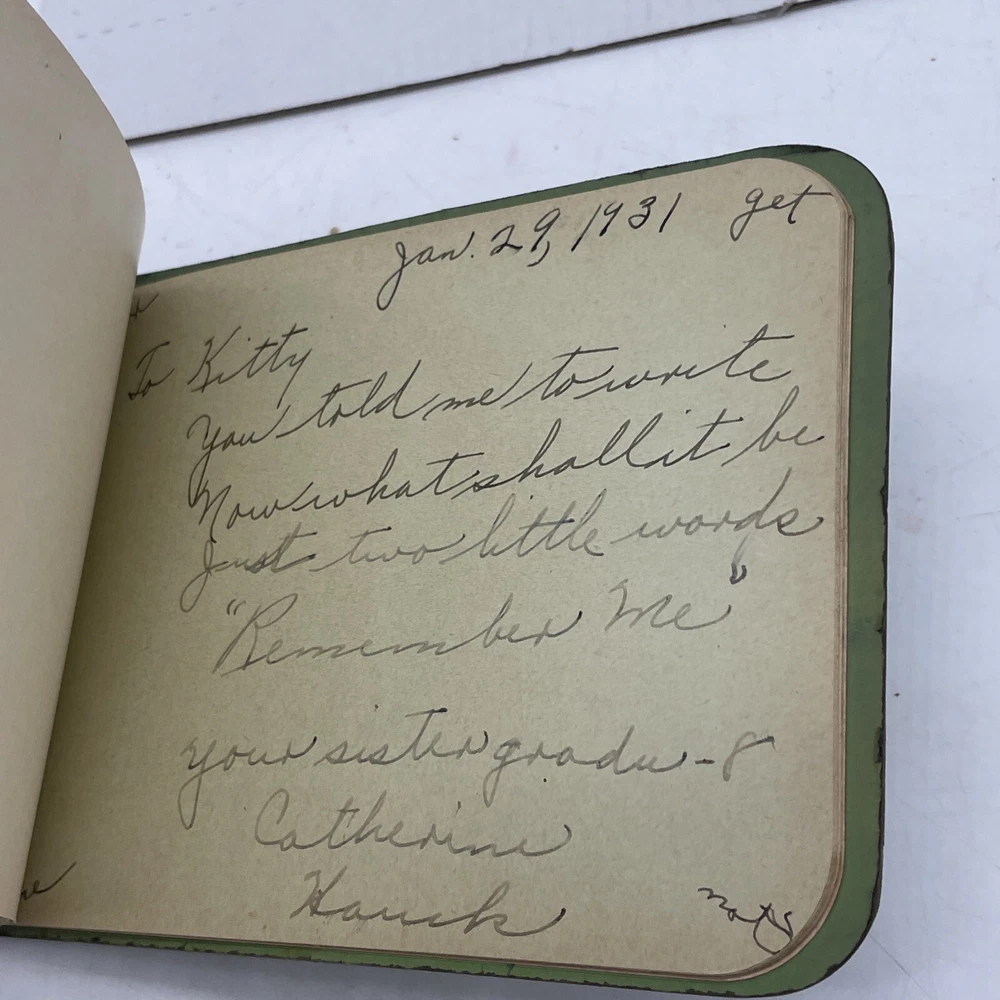 Jan. 29, 1931 get
To Kitty
You told me to write
Now what shall it be
Just two little words
"Remember Me"
your sister gradu-8
Catherine
Hauck